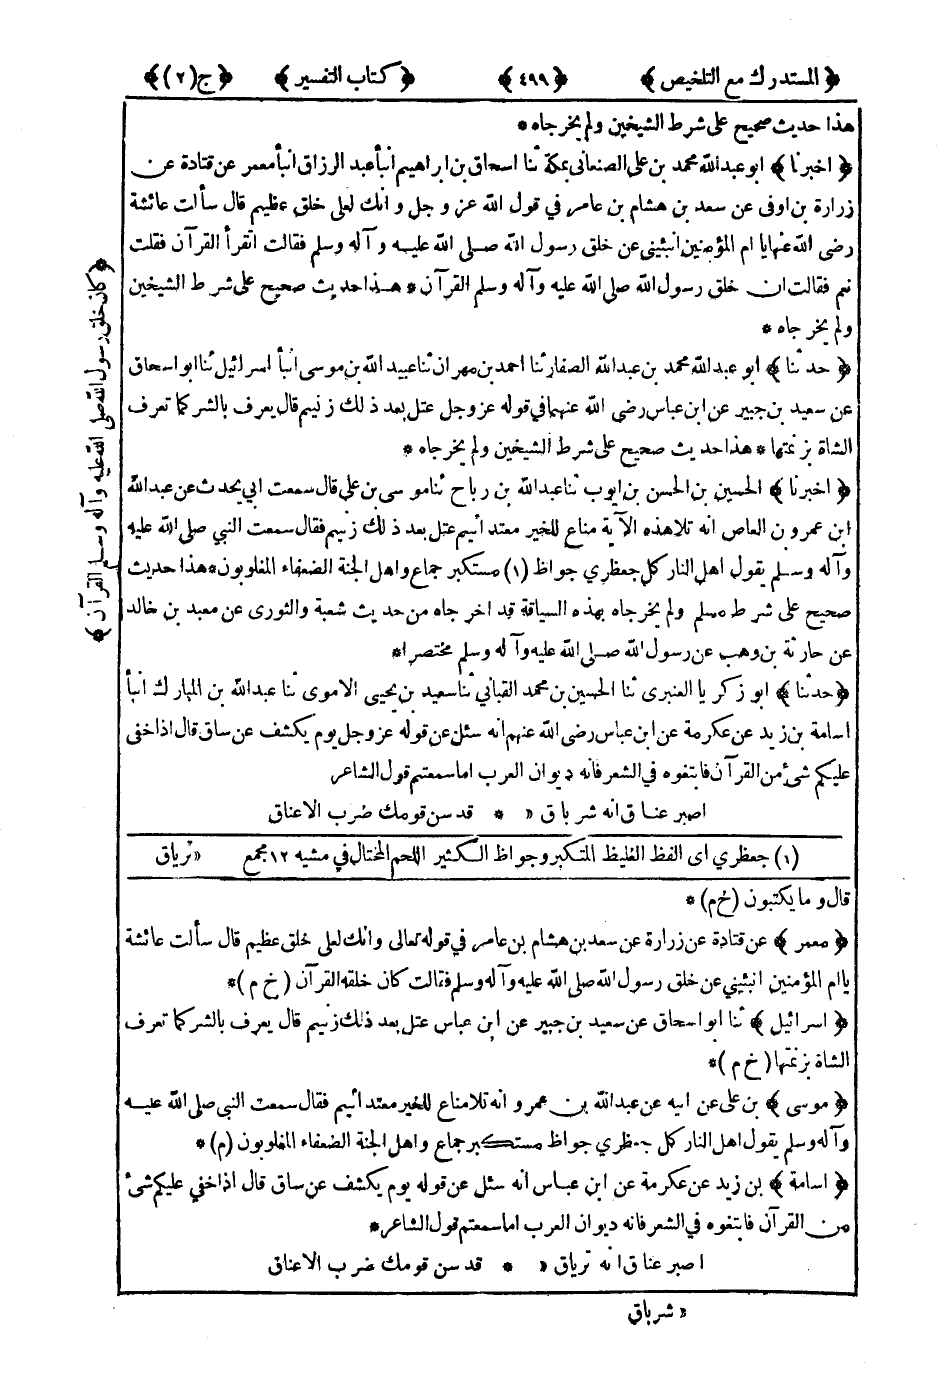 ﴿ المستدرك مع التلخيص ﴾ ﴿ ٤٩٩ ﴾ ﴿ كتاب التفسير ﴾ ﴿ ج (٢) ﴾
هذا حديث صحيح على شرط الشيخين ولم يخرجاه *
﴿ اخبرنا ﴾ ابو عبد الله محمد بن على الصنعانى بمكة ثنا اسحاق بن ابراهيم انبأ عبد الرزاق انبأ معمر عن قتادة عن
زرارة بن اوفى عن سعد بن هشام بن عامر في قول الله عز و جل و انك لعلى خلق عظيم قال سألت عائشة
رضى الله عنها يا ام المؤمنين انبئينى عن خلق رسول الله صلى الله عليه و آله وسلم فقالت اتقرأ القرآن فقلت
نعم فقالت ان خلق رسول الله صلى الله عليه وآله وسلم القرآن * هذا حديث صحيح على شرط الشيخين
ولم يخرجاه *
﴿ حدثنا ﴾ ابو عبد الله محمد بن عبد الله الصفار ثنا احمد بن مهران ثنا عبيد الله بن موسى انبأ اسرائيل ثنا ابو اسحاق
عن سعيد بن جبير عن ابن عباس رضى الله عنهما في قوله عز وجل عتل بعد ذلك زنيم قال يعرف بالشر كما تعرف
الشاة بزنمتها * هذا حديث صحيح على شرط الشيخين ولم يخرجاه *
﴿ اخبرنا ﴾ الحسين بن الحسن بن ايوب ثنا عبد الله بن رباح ثنا موسى بن على قال سمعت ابي يحدث عن عبد الله
ابن عمرو ن العاص انه تلا هذه الآية مناع للخير معتد اثيم عتل بعد ذلك زنيم فقال سمعت النبي صلى الله عليه
وآله وسلم يقول اهل النار كل جعظري جواظ (١) مستكبر جماع واهل الجنة الضعفاء المغلوبون * هذا حديث
صحيح على شرط مسلم ولم يخرجاه بهذه السياقة قد اخرجاه من حديث شعبة والثورى عن معبد بن خالد
عن حارثة بن وهب عن رسول الله صلى الله عليه وآله وسلم مختصرا *
﴿ حدثنا ﴾ ابو زكريا العنبرى ثنا الحسين بن محمد القبانى ثنا سعيد بن يحيى الاموى ثنا عبد الله بن المبارك انبأ
اسامة بن زيد عن عكرمة عن ابن عباس رضى الله عنهم انه سئل عن قوله عز وجل يوم يكشف عن ساق قال اذا خفى
عليكم شئ من القرآن فابتغوه في الشعر فانه ديوان العرب اما سمعتم قول الشاعر
اصبر عناق انه شرباق « * قد سن قومك ضرب الاعناق
(١) جعظري اى الفظ الغليظ المتكبر وجواظ الكثير اللحم المختال في مشيه ١٢ مجمع « ترياق
قال و ما يكتبون (خ م) *
﴿ معمر ﴾ عن قتادة عن زرارة عن سعد بن هشام بن عامر في قوله تعالى وانك لعلى خلق عظيم قال سألت عائشة
يا ام المؤمنين انبئينى عن خلق رسول الله صلى الله عليه وآله وسلم فقالت كان خلقه القرآن ( خ م ) *
﴿ اسرائيل ﴾ ثنا ابو اسحاق عن سعيد بن جبير عن ابن عباس عتل بعد ذلك زنيم قال يعرف بالشر كما تعرف
الشاة بزنمتها ( خ م ) *
﴿ موسى ﴾ بن على عن ابيه عن عبد الله بن عمرو انه تلا مناع للخير معتد اثيم فقال سمعت النبي صلى الله عليه
وآله وسلم يقول اهل النار كل جعظري جواظ مستكبر جماع واهل الجنة الضعفاء المغلوبون (م) *
﴿ اسامة ﴾ بن زيد عن عكرمة عن ابن عباس انه سئل عن قوله يوم يكشف عن ساق قال اذا خفي عليكم شئ
من القرآن فابتغوه في الشعر فانه ديوان العرب اما سمعتم قول الشاعر *
اصبر عناق انه ترياق « * قد سن قومك ضرب الاعناق
« شرباق
﴿ كان خلق رسول الله صلى الله عليه وآله وسلم القرآن ﴾